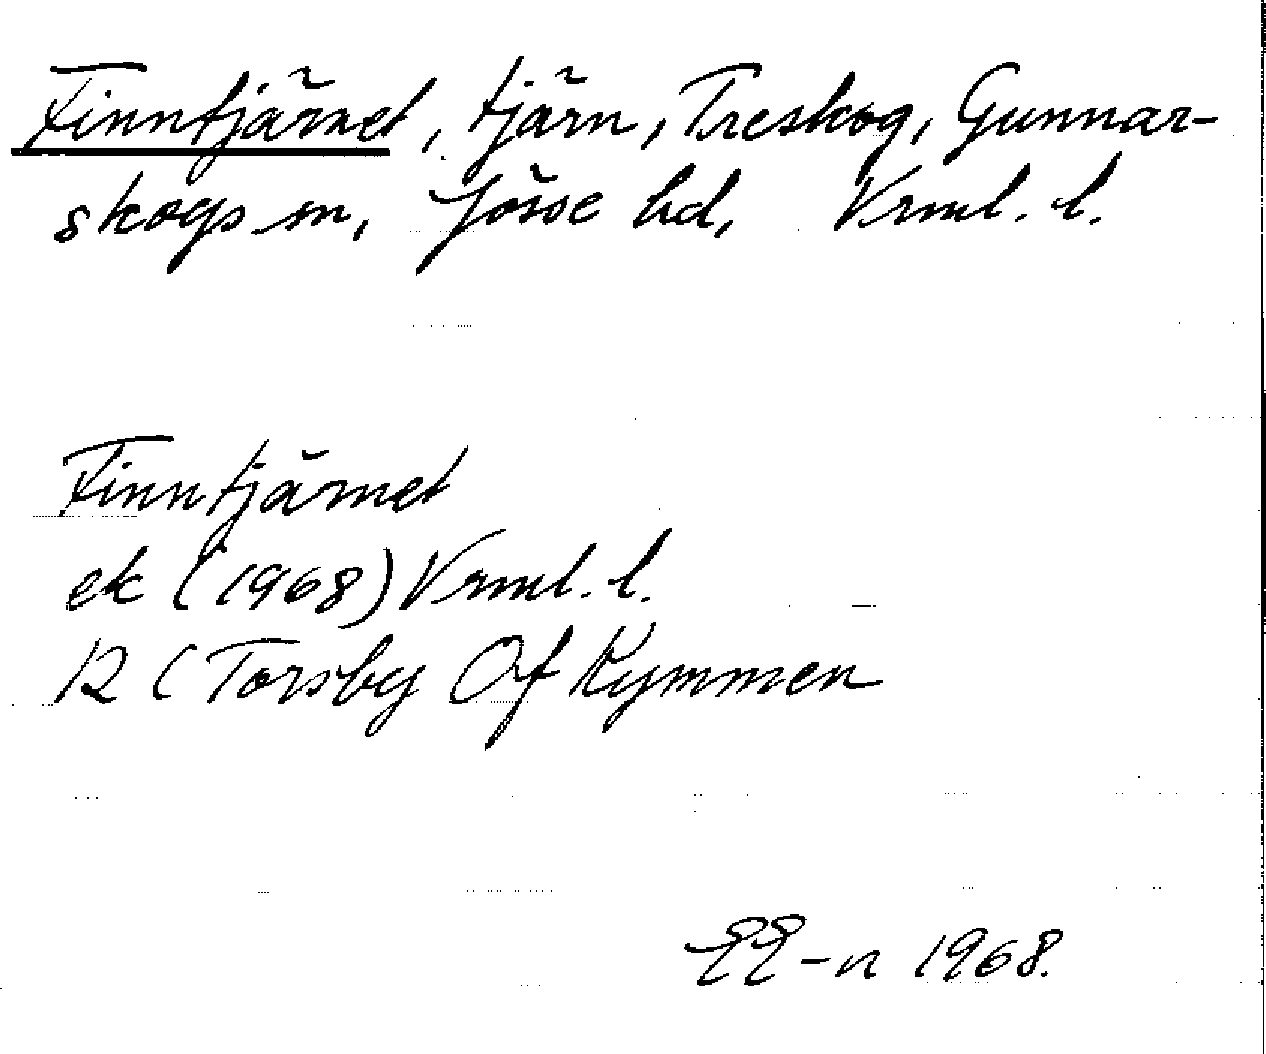 Finntjärnet, tjärn, Treskog, Gunnar-
skogs sn, Jösse hd, Vrml. l.
Finntjärnet
ek (1968) Vrml. l.
12 C Torsby Of Kymmen
EE-n 1968.